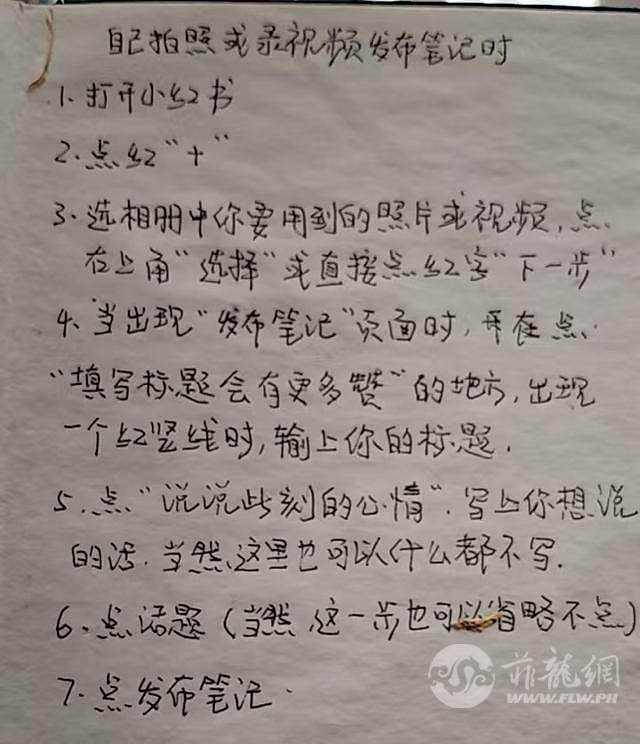 自己拍照或录视频发布笔记时
1、打开小红书
2、点红“+”
3、选相册中你要用到的照片或视频,点
右上角“选择”或直接点红字“下一步”
4、当出现“发布笔记”页面时,再在点
“填写标题会有更多赞”的地方,出现
一个红竖线时,输上你的标题.
5、点“说说此刻的心情”.写上你想说
的话.当然这里也可以什么都不写.
6、点话题(当然这一步也可以省略不点)
7、点发布笔记.
菲龍網
WWW.FLW.PH